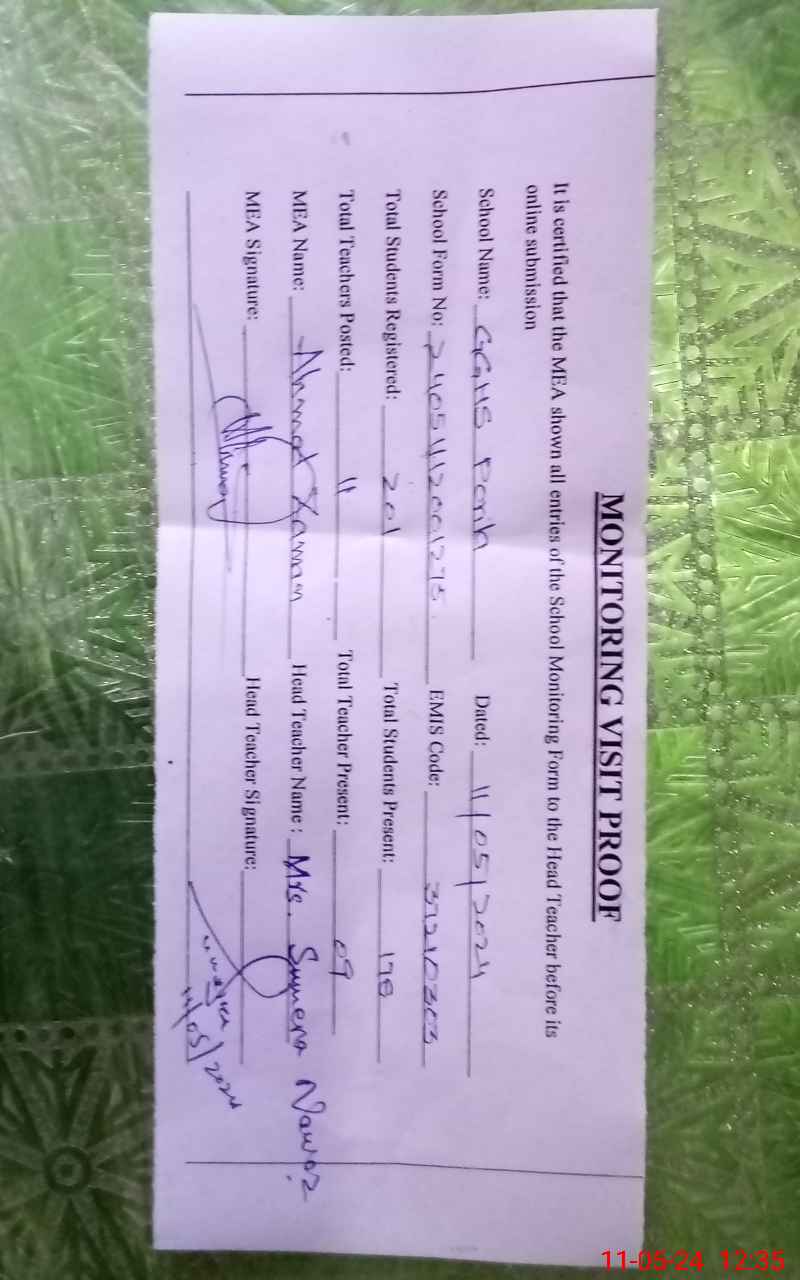 MONITORING VISIT PROOF
It is certified that the MEA shown all entries of the School Monitoring Form to the Head Teacher before its
online submission
School Name: GGHS Dated: 11/05/2024
School Form No: EMIS Code: 37210303
Total Students Registered: 201 Total Students Present: 178
Total Teachers Posted: 11 Total Teacher Present: 09
MEA Name: Ahmad Zaman Head Teacher Name : Mrs. Sumera Nawaz
MEA Signature: Head Teacher Signature:
11/05/2024
11-05-24 12:35